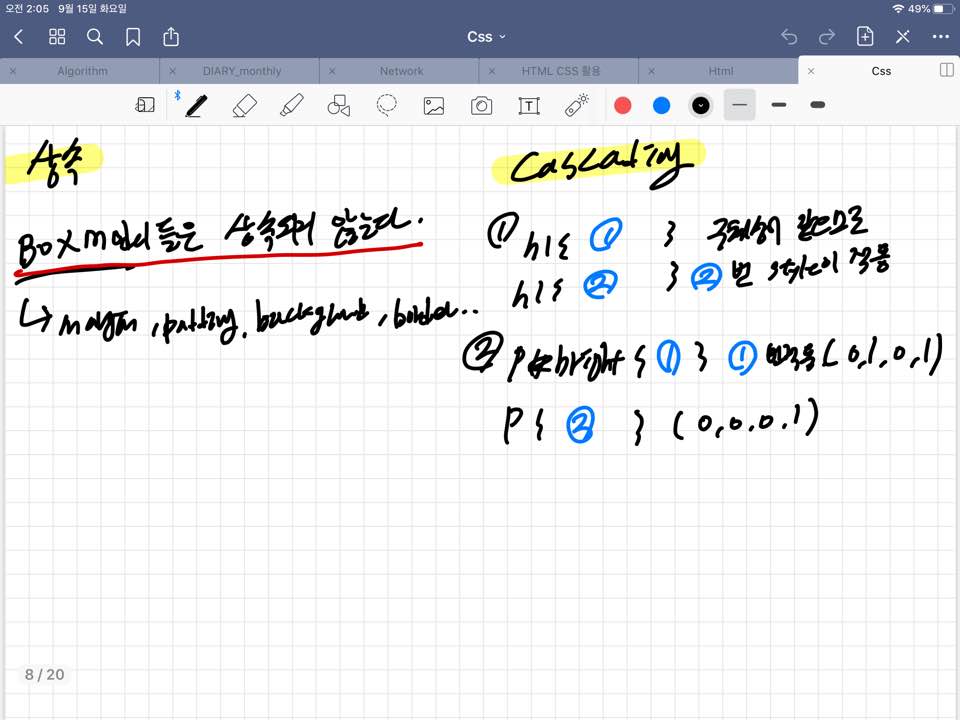 오전 2:05 9월 15일 화요일
49%
Css
Algorithm
DIARY_monthly
Network
HTML CSS 활용
Html
Css
상속
Box 들은 상속되지 않는다.
↳ margin, padding, background, border..
Cascading
① h1{ ① } 구체성이 같으므로
h1{ ② } ② 번 style이 적용
② p.bright { ① } ① 번적용 (0,1,0,1)
P { ② } (0,0,0,1)
8 / 20